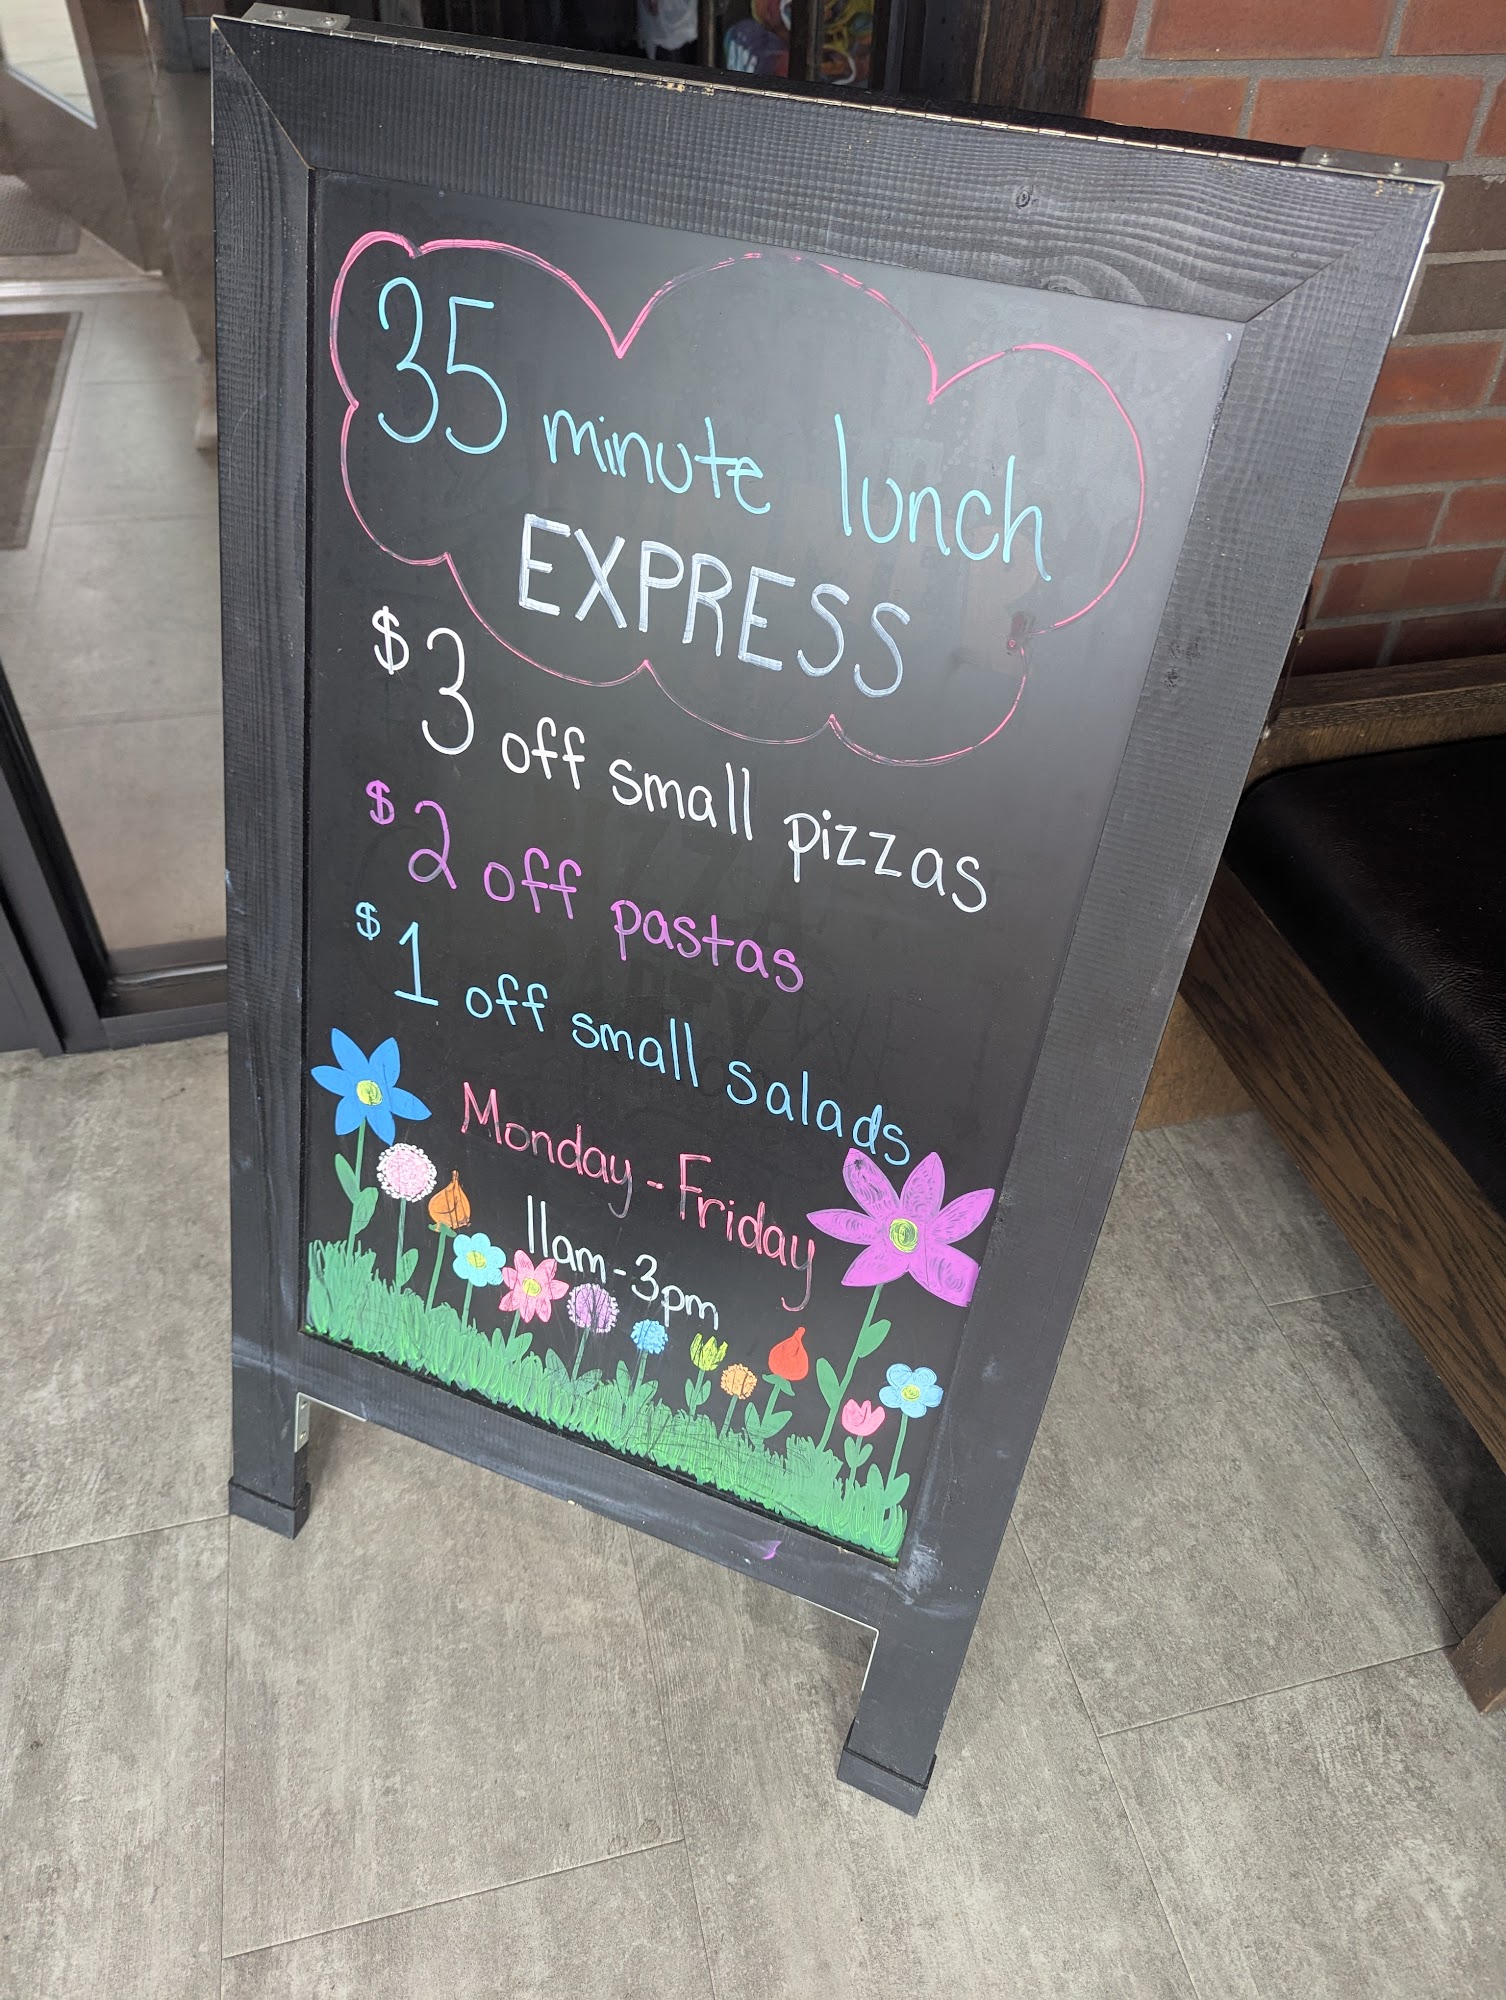 35 minute lunch
EXPRESS
$3 off small pizzas
$2 off pastas
$1 off small salads
Monday-Friday
11am-3pm